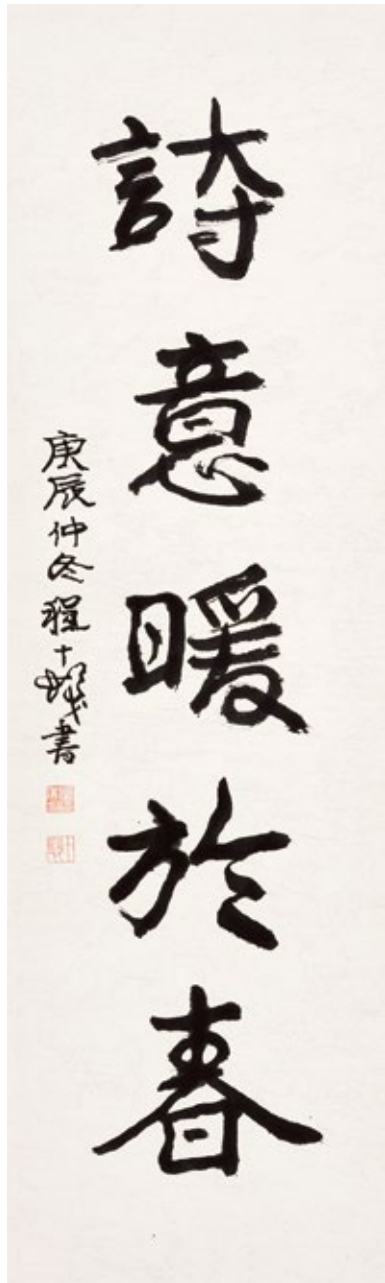 詩意暖於春
庚辰仲冬程十髮書